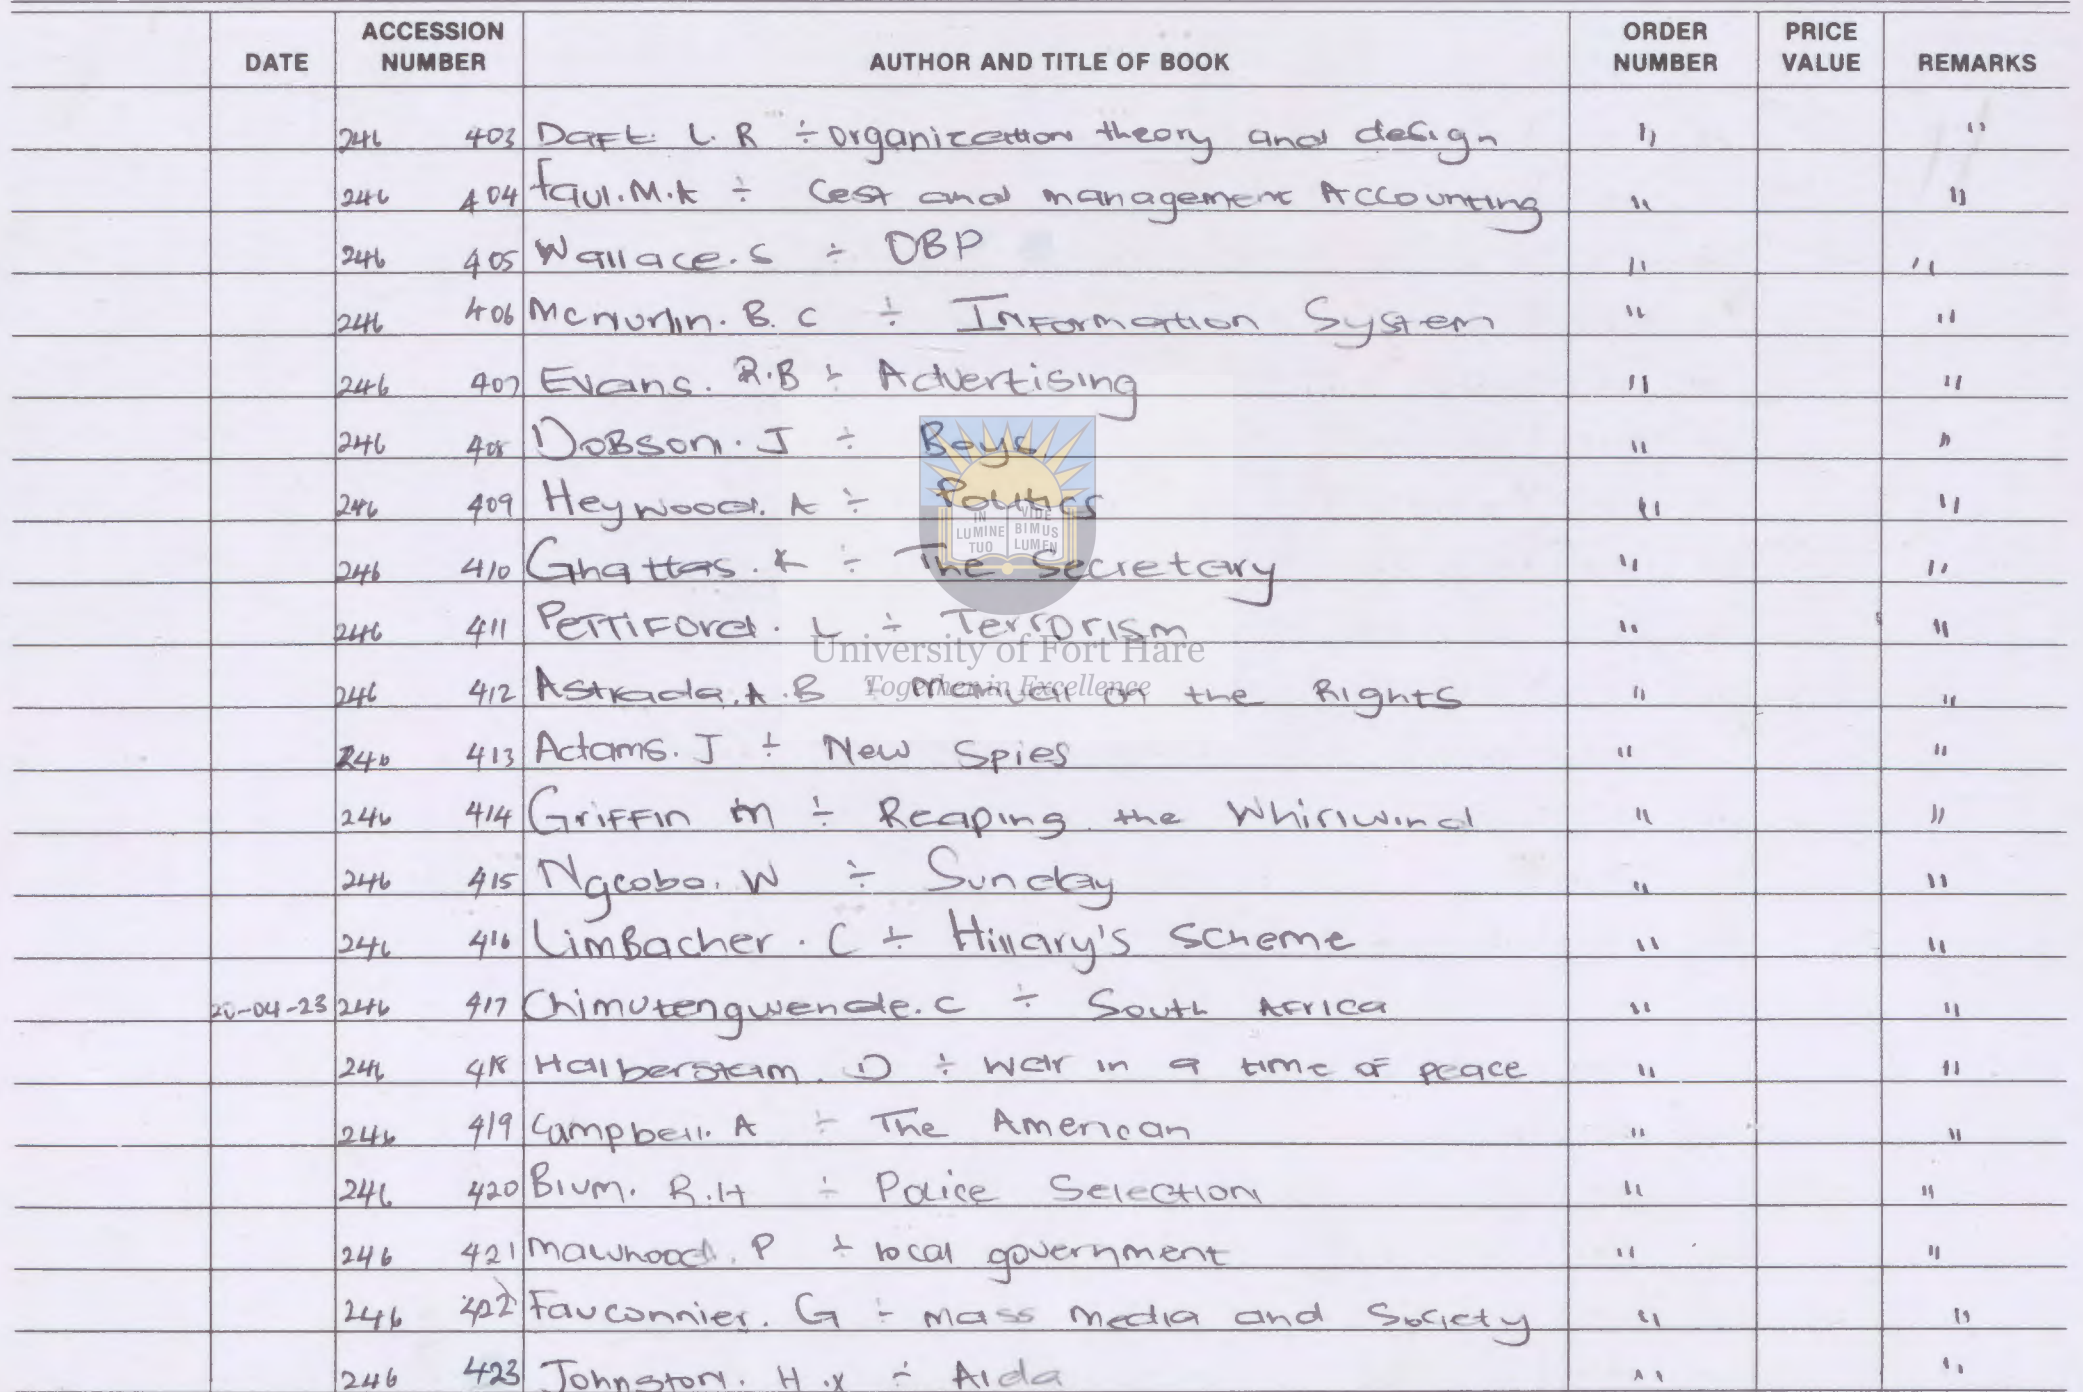 DATE ACCESSION NUMBER AUTHOR AND TITLE OF BOOK ORDER NUMBER PRICE VALUE REMARKS
246 403 Daft. L. R ÷ organization theory and design " "
246 404 Faul. M. A ÷ Cost and management Accounting " "
246 405 Wallace. S ÷ DBP " "
246 406 Mcnurlin. B. C ÷ Information System " "
246 407 Evans. R.B ÷ Advertising " "
246 408 Dobson. J ÷ Boys " "
246 409 Heywood. A ÷ Politics " "
IN LUMINE TUO VIDE BIMUS LUMEN
246 410 Ghattas. K ÷ The Secretary " "
246 411 Pettiford. L ÷ Terrorism " "
University of Fort Hare
Together in Excellence
246 412 Astrada. A. B ÷ Manual on the Rights " "
246 413 Adams. J ÷ New Spies " "
246 414 Griffin M ÷ Reaping the Whirlwind " "
246 415 Ngcobo. W ÷ Sunday " "
246 416 LimBacher. C ÷ Hillary's Scheme " "
20-04-23 246 417 Chimutengwende. C ÷ South Africa " "
246 418 Halberstam. D ÷ War in a time of peace " "
246 419 Campbell. A ÷ The American " "
246 420 Blum. R.H ÷ Police Selection " "
246 421 Mawhood. P ÷ local government " "
246 422 Fauconnier. G ÷ mass media and Society " "
246 423 Johnston. H. ÷ Aida " "